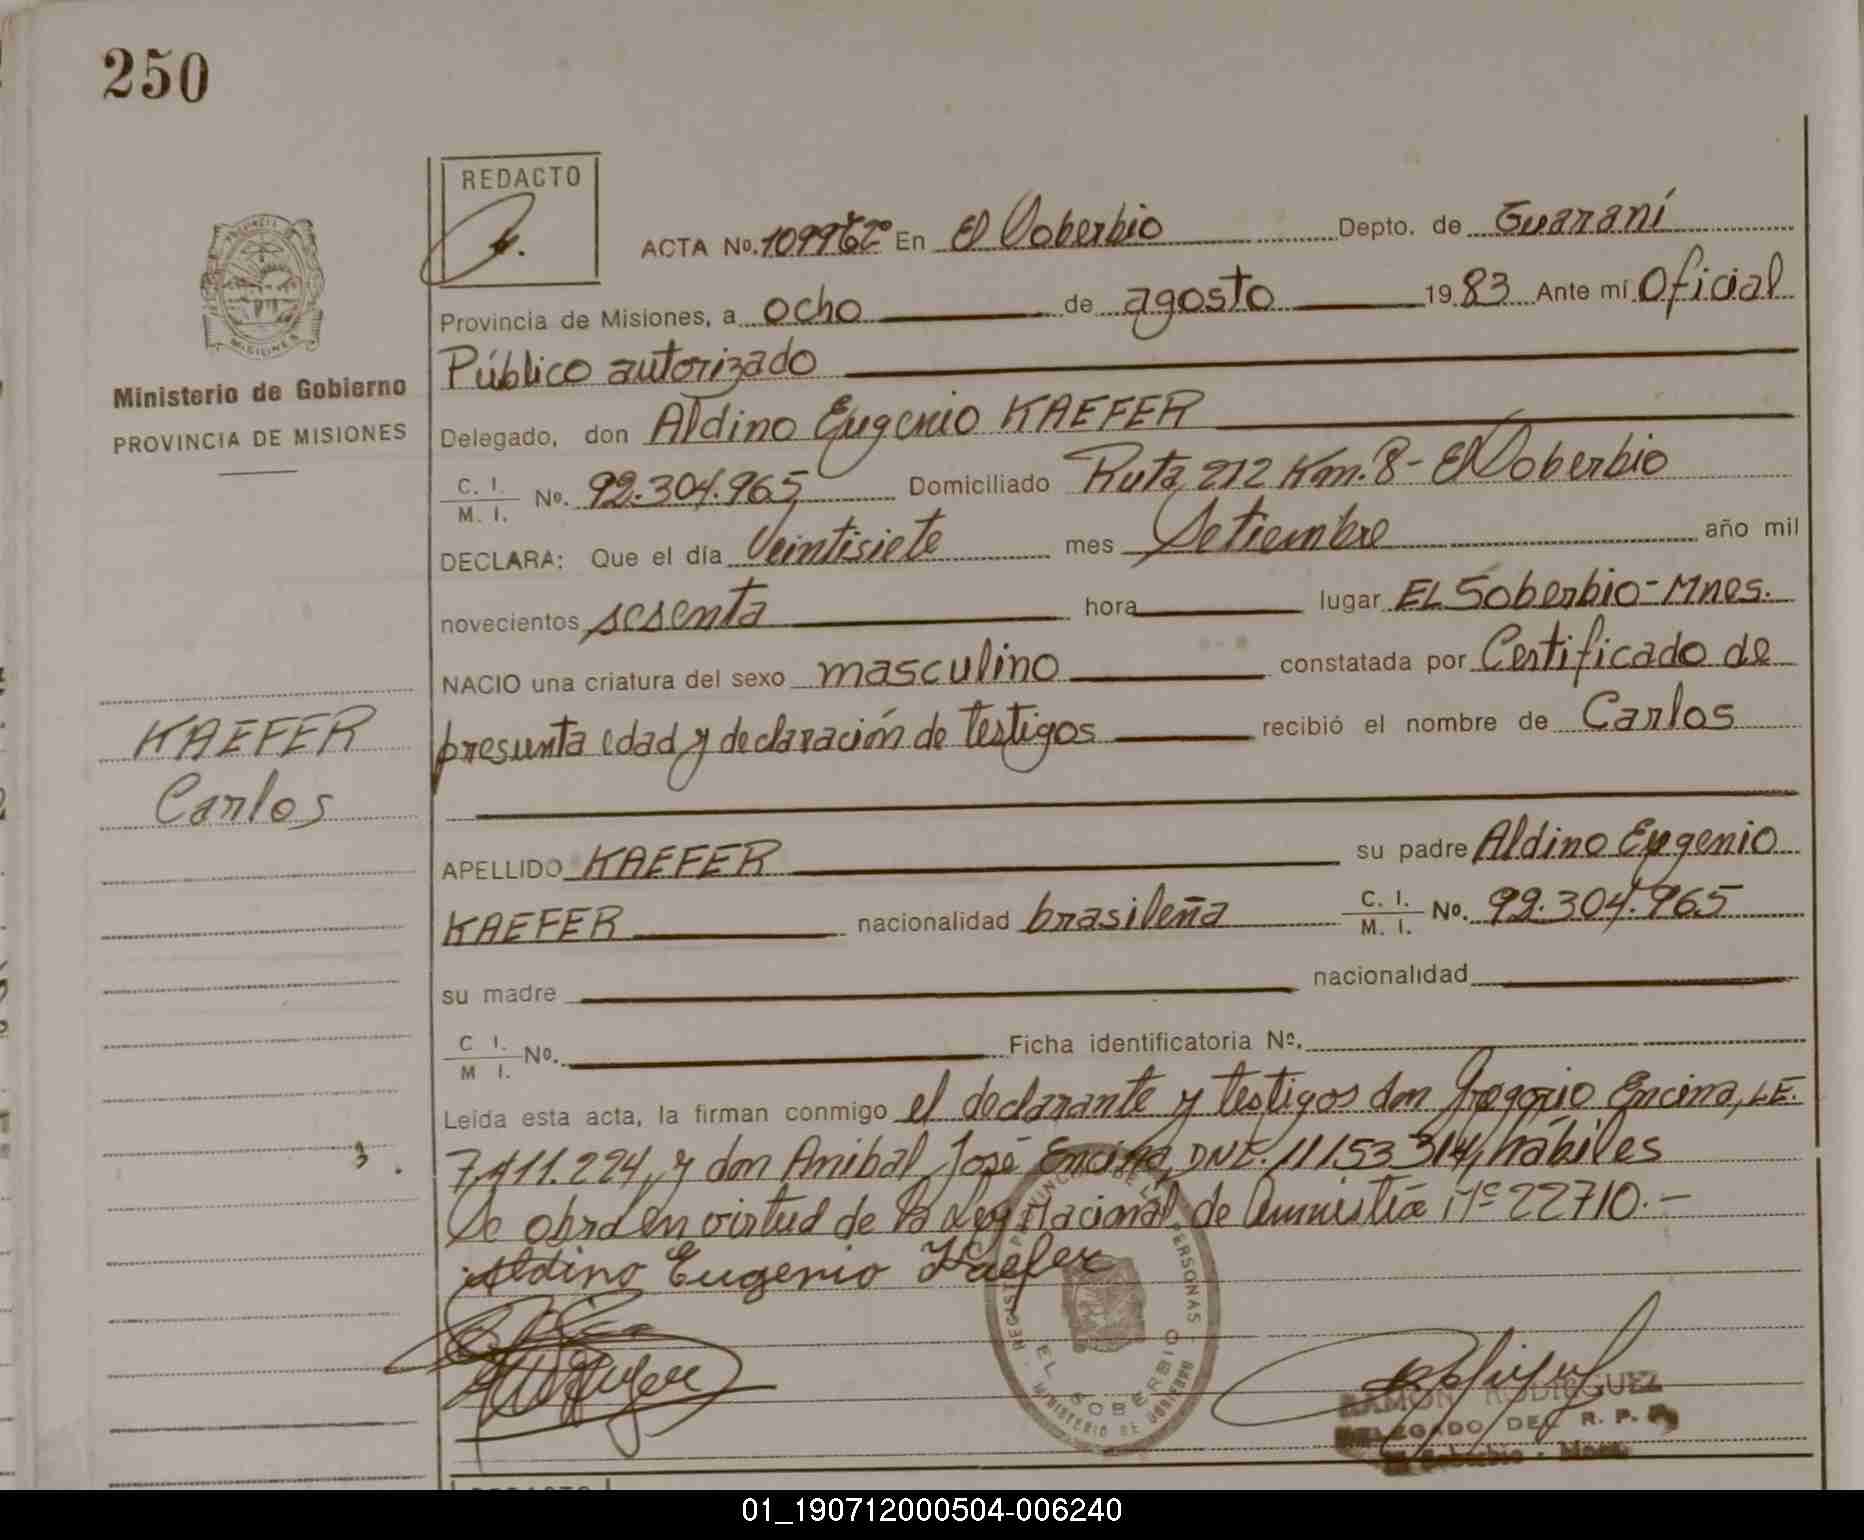 250
REDACTO
ACTA No. En El Soberbio Depto. de Guaraní
Provincia de Misiones, a ocho de agosto 1983 Ante mí Oficial
Público autorizado
Ministerio de Gobierno
PROVINCIA DE MISIONES
Delegado, don Aldino Eugenio KAEFER
C. I. / M. I. No. 92.304.965 Domiciliado Ruta 212 Km. 8 - El Soberbio
DECLARA: Que el día Veintisiete mes Setiembre año mil
novecientos sesenta hora lugar EL Soberbio - Mnes.
NACIO una criatura del sexo masculino constatada por Certificado de
presunta edad y declaración de testigos recibió el nombre de Carlos
KAEFER
Carlos
APELLIDO KAEFER su padre Aldino Eugenio
KAEFER nacionalidad brasileña C. I. / M. I. No. 92.304.965
su madre nacionalidad
C I. / M I. No. Ficha identificatoria Nº.
Leída esta acta, la firman conmigo el declarante y testigos don Gregorio Encina, LE.
7.411.224, y don Anibal José Encina, DNI. 11153314, hábiles
Se obra en virtud de la Ley Nacional de Amnistía Nº 22710.-
Aldino Eugenio Kaefer
REGISTRO PROVINCIAL DE LAS PERSONAS
EL SOBERBIO
MINISTERIO DE GOBIERNO
RAMON RODRIGUEZ
DELEGADO DEL R. P. P.
El Soberbio - Mnes.
REDACTO
01_190712000504-006240